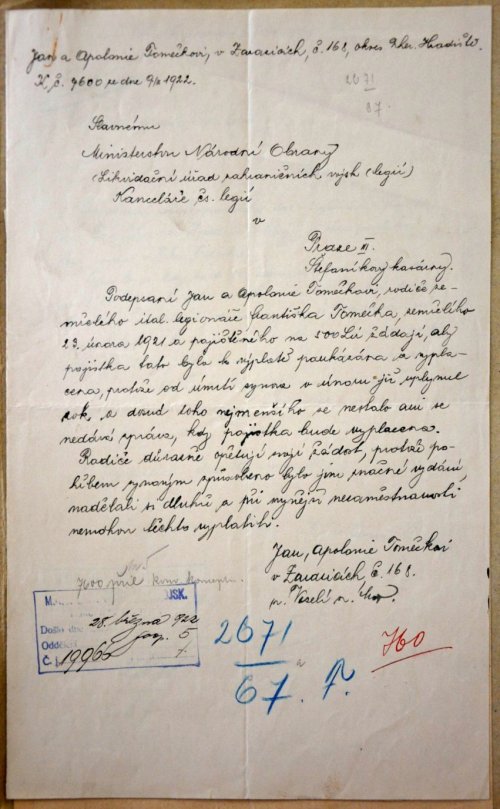 Jan a Apolonie Tomečkovi, v Žeraviciách, č. 168, okres Uher. Hradiště.
K. č. 7600 ze dne 9/III 1922.
2671
67.
Slavnému
Ministerstvu Národní Obrany
(Likvidační úřad zahraničních vojsk (legií)
Kanceláře čs. legií
v
Praze III.
Štefánikovy kasárny.
Podepsaní Jan a Apolonie Tomečkovi, rodiče ze-
mřelého ital. legionáře Františka Tomečka, zemřelého
23. února 1921 a pojištěného na 500 Lir žádají, aby
pojistka tato byla k výplatě poukázána a vypla-
cena, protože od úmrtí synova v únoru již uplynul
rok, a dosud toho nejmenšího se nestalo ani se
nedává zpráva, kdy pojistka bude vyplacena.
Rodiče důrazně opětují svoji žádost, protože po-
hřbem synovým způsobeno bylo jim značné vydání,
nadělali si dluhů a při nynější nezaměstnanosti
nemohou těchto vyplatiti.
Jan, Apolonie Tomečkovi
v Žeraviciách č. 168.
p. Veselí n. Mor.
7600 příl.
NSK.
Došlo dne 28. března 922
příl. 5
Odděl
Č. 19966
2671
67. P.
760